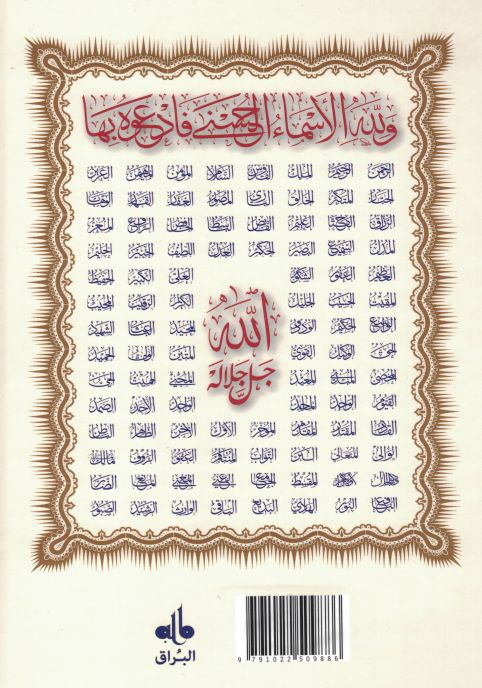 ولله الأسماء الحسنى فادعوه بها
الرحمن الرحيم الملك القدوس السلام المؤمن المهيمن العزيز
الجبار المتكبر الخالق البارئ المصور الغفار القهار الوهاب
الرزاق الفتاح العليم القابض الباسط الخافض الرافع المعز
المذل السميع البصير الحكم العدل اللطيف الخبير الحليم
العظيم الغفور الشكور العلي الكبير الحفيظ
المقيت الحسيب الجليل الكريم الرقيب المجيب
الواسع الحكيم الودود المجيد الباعث الشهيد
الحق الوكيل القوي المتين الولي الحميد
المحصي المبدئ المعيد المحيي المميت الحي
القيوم الواجد الماجد الواحد الأحد الصمد
الله
جل جلاله
القادر المقتدر المقدم المؤخر الأول الآخر الظاهر الباطن
الوالي المتعالي البر التواب المنتقم العفو الرؤوف مالك الملك
ذو الجلال والإكرام المقسط الجامع الغني المغني المانع الضار
النافع النور الهادي البديع الباقي الوارث الرشيد الصبور
البراق
9 791022 509886